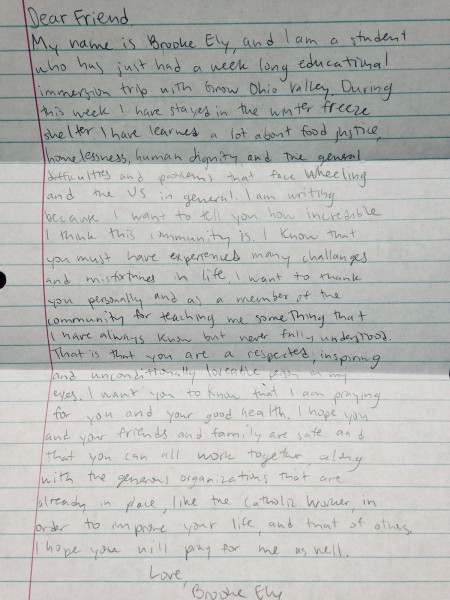 Dear Friend
My name is Brooke Ely, and I am a student
who has just had a week long educational
immersion trip with Grow Ohio Valley. During
this week I have stayed in the winter freeze
shelter I have learned a lot about food justice,
homelessness, human dignity, and the general
difficulties and problems that face Wheeling
and the US in general. I am writing
because I want to tell you how incredible
I think this community is. I know that
you must have experienced many challanges
and misfortunes in life. I want to thank
you personally and as a member of the
community for teaching me something that
I have always know but never fully understood.
That is that you are a respected, inspiring
and unconditionally loveable person in my
eyes. I want you to know that I am praying
for you and your good health. I hope you
and your friends and family are safe and
that you can all work together, along
with the generous organizations that are
already in place, like the Catholic Worker, in
order to improve your life, and that of others.
I hope you will pray for me as well.
Love,
Brooke Ely